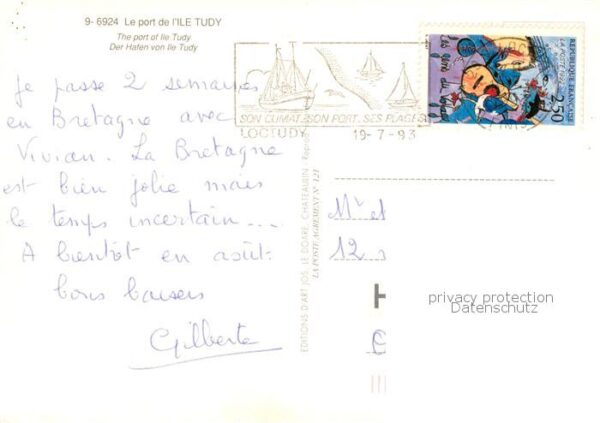 9- 6924 Le port de l'ILE TUDY
The port of Ile Tudy
Der Hafen von Ile Tudy
Je passe 2 semaines
en Bretagne avec
Vivian. La Bretagne
est bien jolie mais
le temps incertain....
A bientôt en août.
bons baisers
Gilberte
SON CLIMAT. SON PORT. SES PLAGES
LOCTUDY 19-7-93
REPUBLIQUE FRANÇAISE
LA POSTE 1993
2,50
EDITIONS D'ART JOS, LE DOARE, CHATEAULIN
LA POSTE AGREMENT N° 121
Mr et
12
privacy protection
Datenschutz